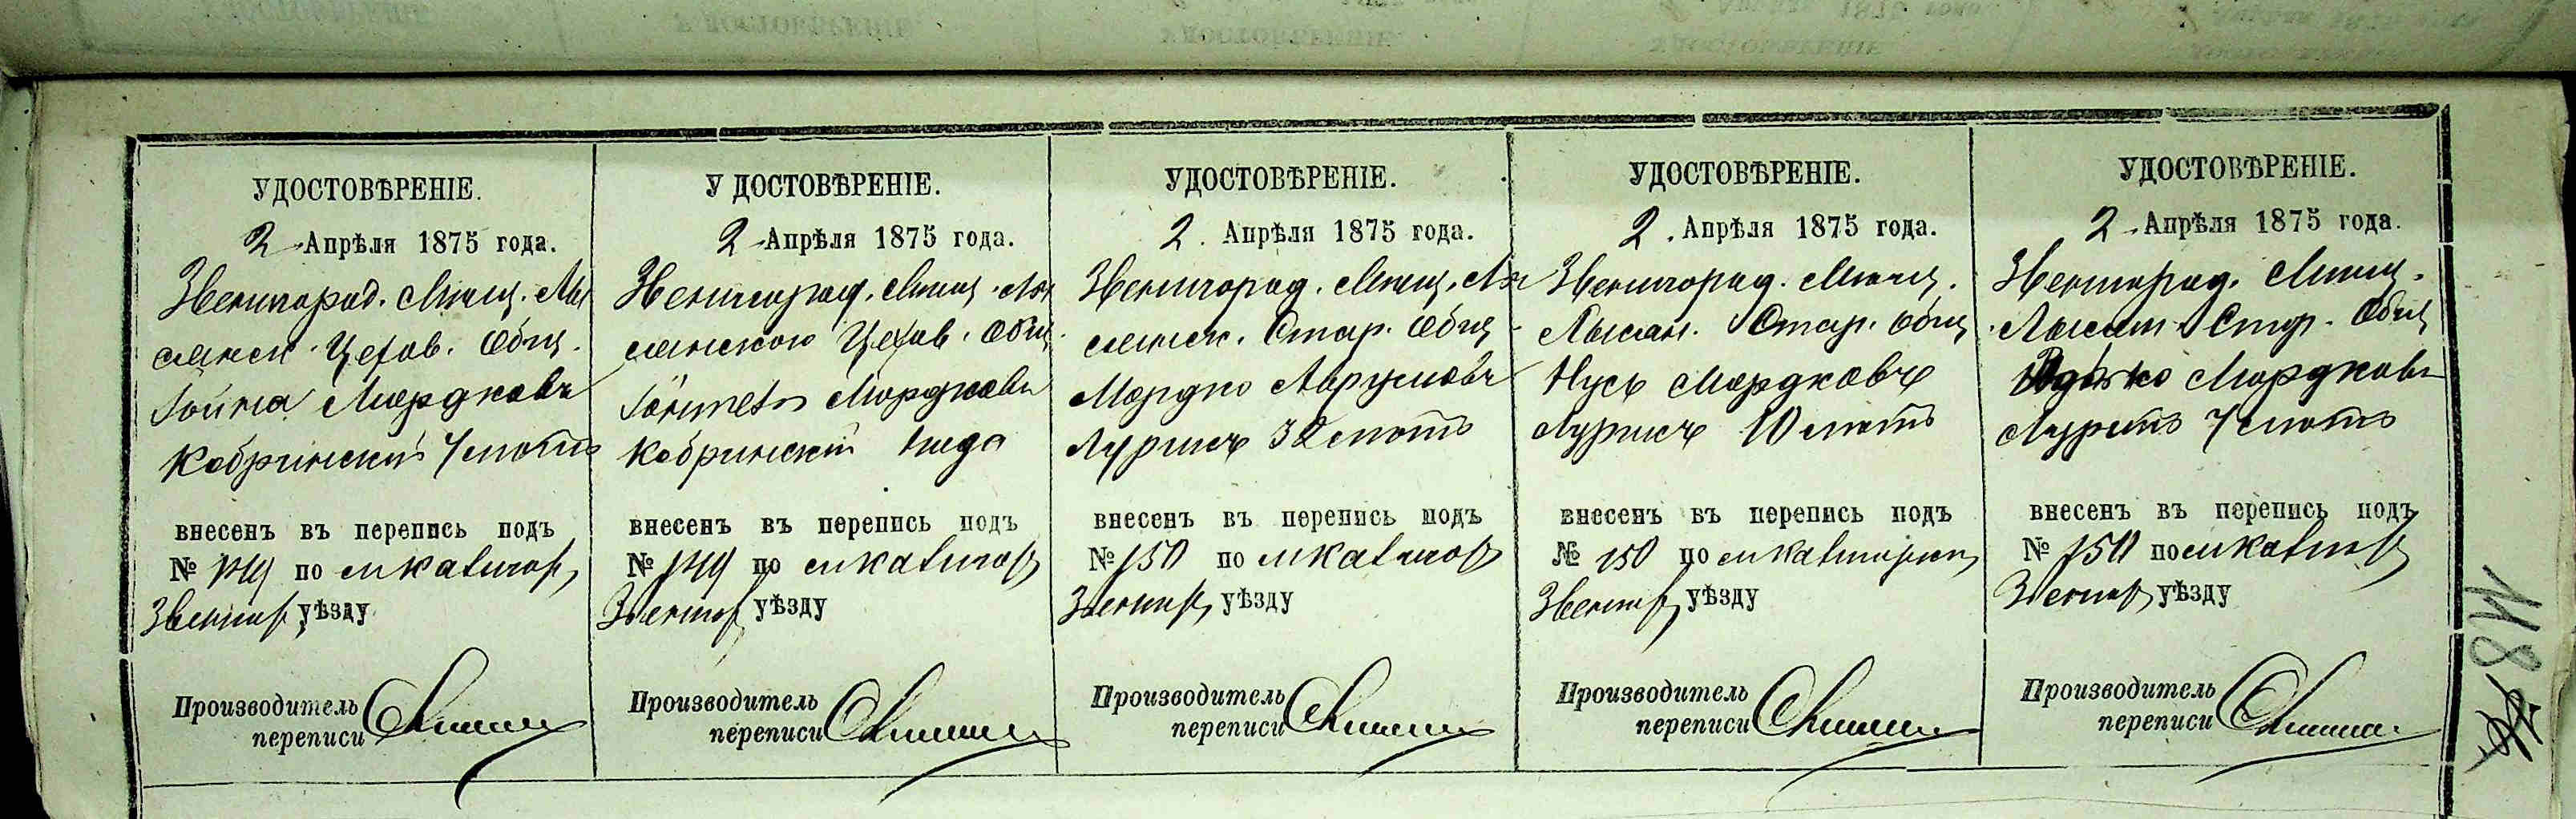 УДОСТОВѢРЕНІЕ.
2 Апрѣля 1875 года.
Звенигород. Мѣщ. Лы
сянск. Цехов. Общ.
Мордковъ
Кобринскій 7 лѣтъ
внесенъ въ перепись подъ
№ 149 по м категор,
Звениг уѣзду
Производитель
переписи
У ДОСТОВѢРЕНІЕ.
2 Апрѣля 1875 года.
Звенигород. Мѣщ. Лы
сянскою Цехов. Общ.
Мордковъ
Кобринскій года
внесенъ въ перепись подъ
№ 149 по м категор
Звениг уѣзду
Производитель
переписи
УДОСТОВѢРЕНІЕ.
2. Апрѣля 1875 года.
Звенигород. Мѣщ. Лы
сянск. Стар. Общ
Мордко Аврумовъ
Лурихъ 32 лѣтъ
внесенъ въ перепись подъ
№ 150 по м категор
Звениг уѣзду
Производитель
переписи
УДОСТОВѢРЕНІЕ.
2. Апрѣля 1875 года.
Звенигород. Мѣщ.
Лысян. Стар. общ
Нусь Мордковъ
Лурихъ 10 лѣтъ
внесенъ въ перепись подъ
№ 150 по м категоріи
Звениг уѣзду
Производитель
переписи
УДОСТОВѢРЕНІЕ.
2 Апрѣля 1875 года.
Звенигород. Мѣщ.
Лысян. Стар. Общ
Мордковъ
7 лѣтъ
внесенъ въ перепись подъ
№ 150 по м категор
Звениг уѣзду
Производитель
переписи